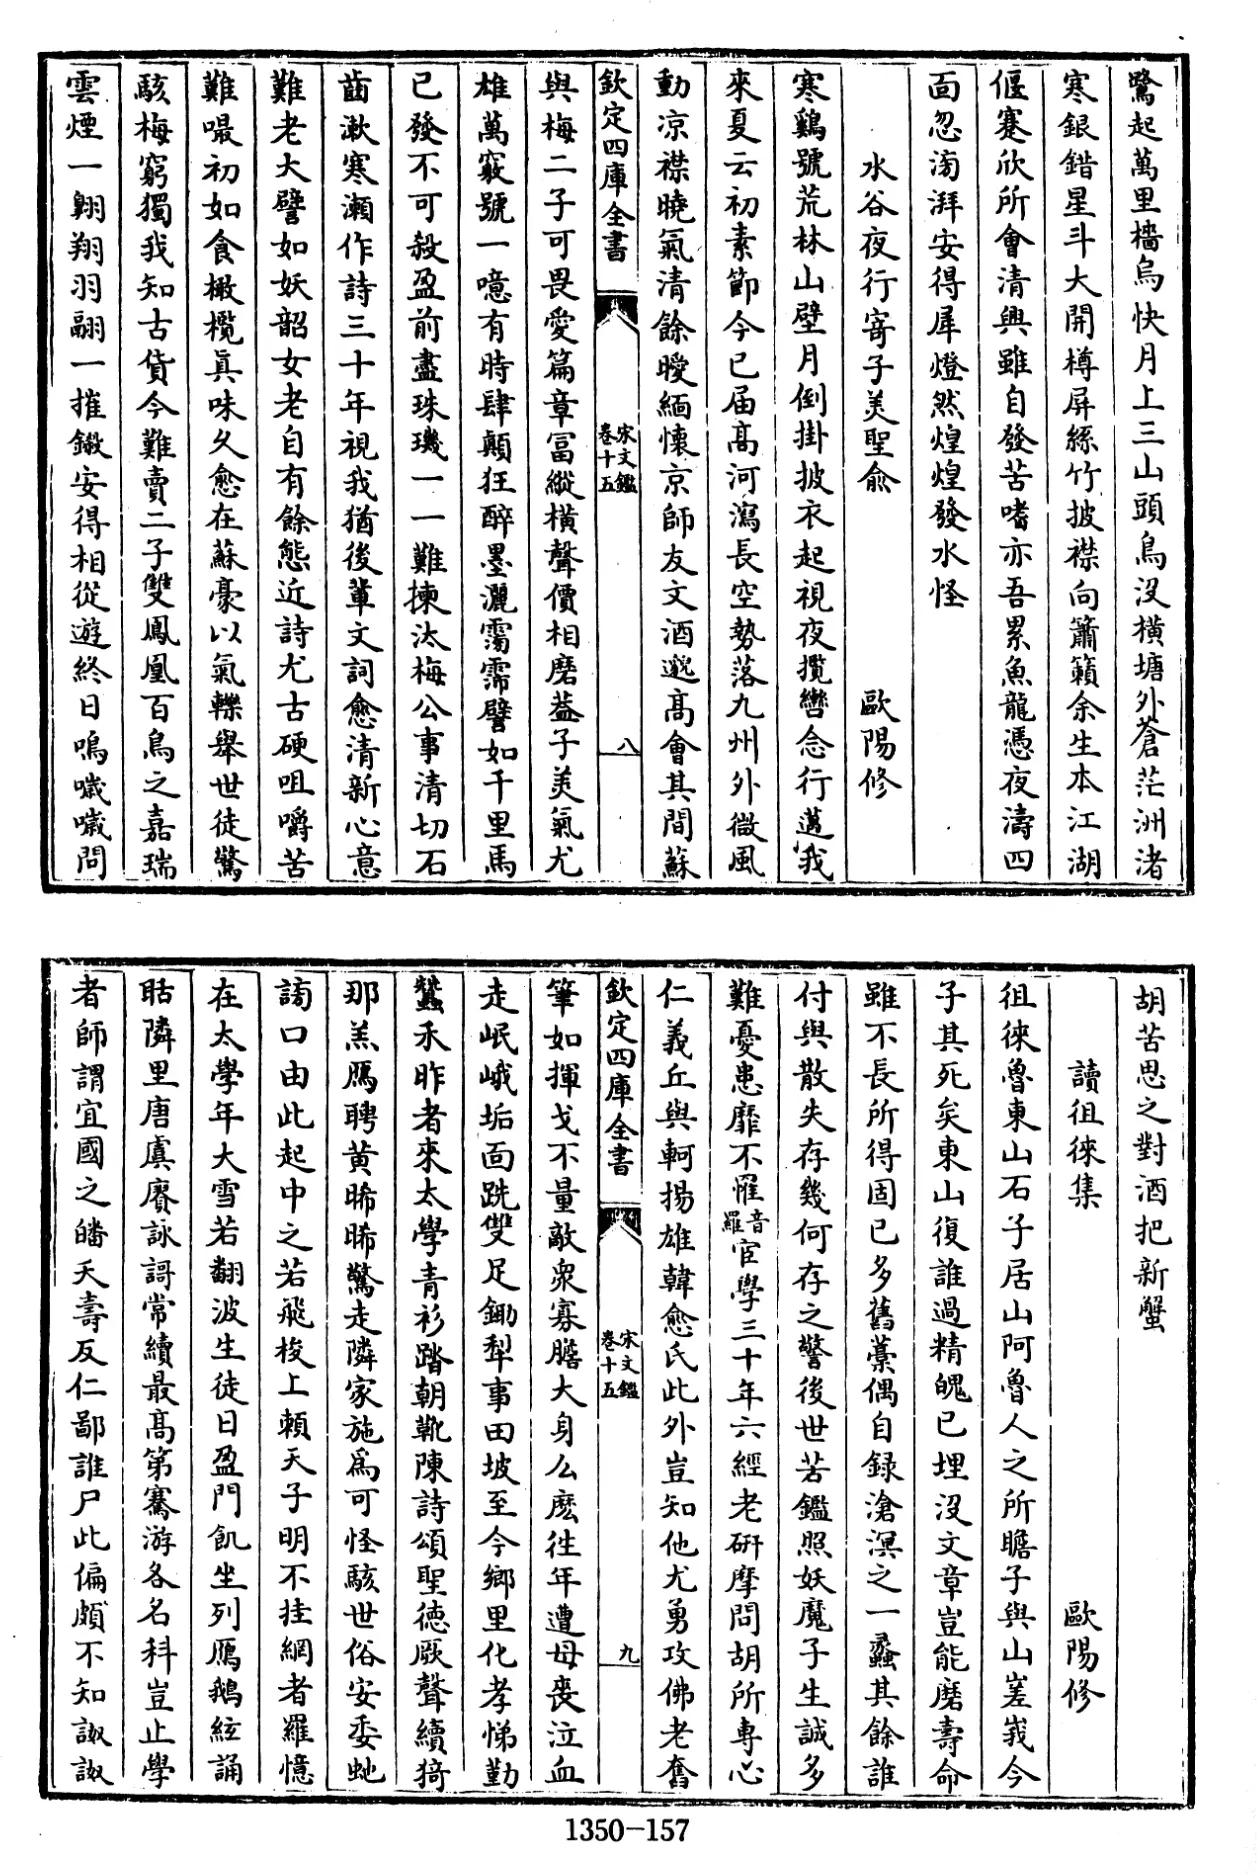 鷺起萬里檣烏快月上三山頭鳥沒橫塘外蒼茫洲渚
寒銀錯星斗大開樽屏絲竹披襟向簫籟余生本江湖
偃蹇欣所會清興雖自發苦嗜亦吾累魚龍憑夜濤四
面忽滂湃安得犀燈然煌煌發水怪
水谷夜行寄子美聖俞 歐陽修
寒鷄號荒林山壁月倒掛披衣起視夜攬轡念行邁我
來夏云初素節今已届高河瀉長空勢落九州外微風
動凉襟曉氣清餘曖緬懷京師友文酒邈高會其間蘇
欽定四庫全書 宋文鑑卷十五 八
與梅二子可畏愛篇章富縱橫聲價相磨葢子美氣尤
雄萬竅號一噫有時肆顛狂醉墨灑霶霈譬如千里馬
已發不可殺盈前盡珠璣一一難揀汰梅公事清切石
齒漱寒瀨作詩三十年視我猶後輩文詞愈清新心意
難老大譬如妖韶女老自有餘態近詩尤古硬咀嚼苦
難嘬初如食橄欖真味久愈在蘇豪以氣轢舉世徒驚
駭梅窮獨我知古貨今難賣二子雙鳳凰百鳥之嘉瑞
雲煙一翺翔羽翮一摧鎩安得相從遊終日鳴噦噦問
胡苦思之對酒把新蟹
讀徂徠集 歐陽修
徂徠魯東山石子居山阿魯人之所瞻子與山嵳峩今
子其死矣東山復誰過精魄已埋沒文章豈能磨壽命
雖不長所得固已多舊藁偶自録滄溟之一蠡其餘誰
付與散失存幾何存之警後世苦鑑照妖魔子生誠多
難憂患靡不罹音羅宦學三十年六經老研摩問胡所專心
仁義丘與軻揚雄韓愈氏此外豈知他尤勇攻佛老奮
欽定四庫全書 宋文鑑卷十五 九
筆如揮戈不量敵衆寡膽大身么麽徃年遭母喪泣血
走岷峨垢面跣雙足鋤犂事田坡至今鄉里化孝悌勤
蠶禾昨者來太學青衫踏朝靴陳詩頌聖德厥聲續猗
那羔鴈聘黄晞晞驚走隣家施爲可怪駭世俗安委虵
謗口由此起中之若飛梭上賴天子明不挂網者羅憶
在太學年大雪若翻波生徒日盈門飢坐列鴈鵝絃誦
聒隣里唐虞賡詠謌常續最高第騫游各名科豈止學
者師謂宜國之皤夭壽反仁鄙誰尸此偏頗不知詉詉